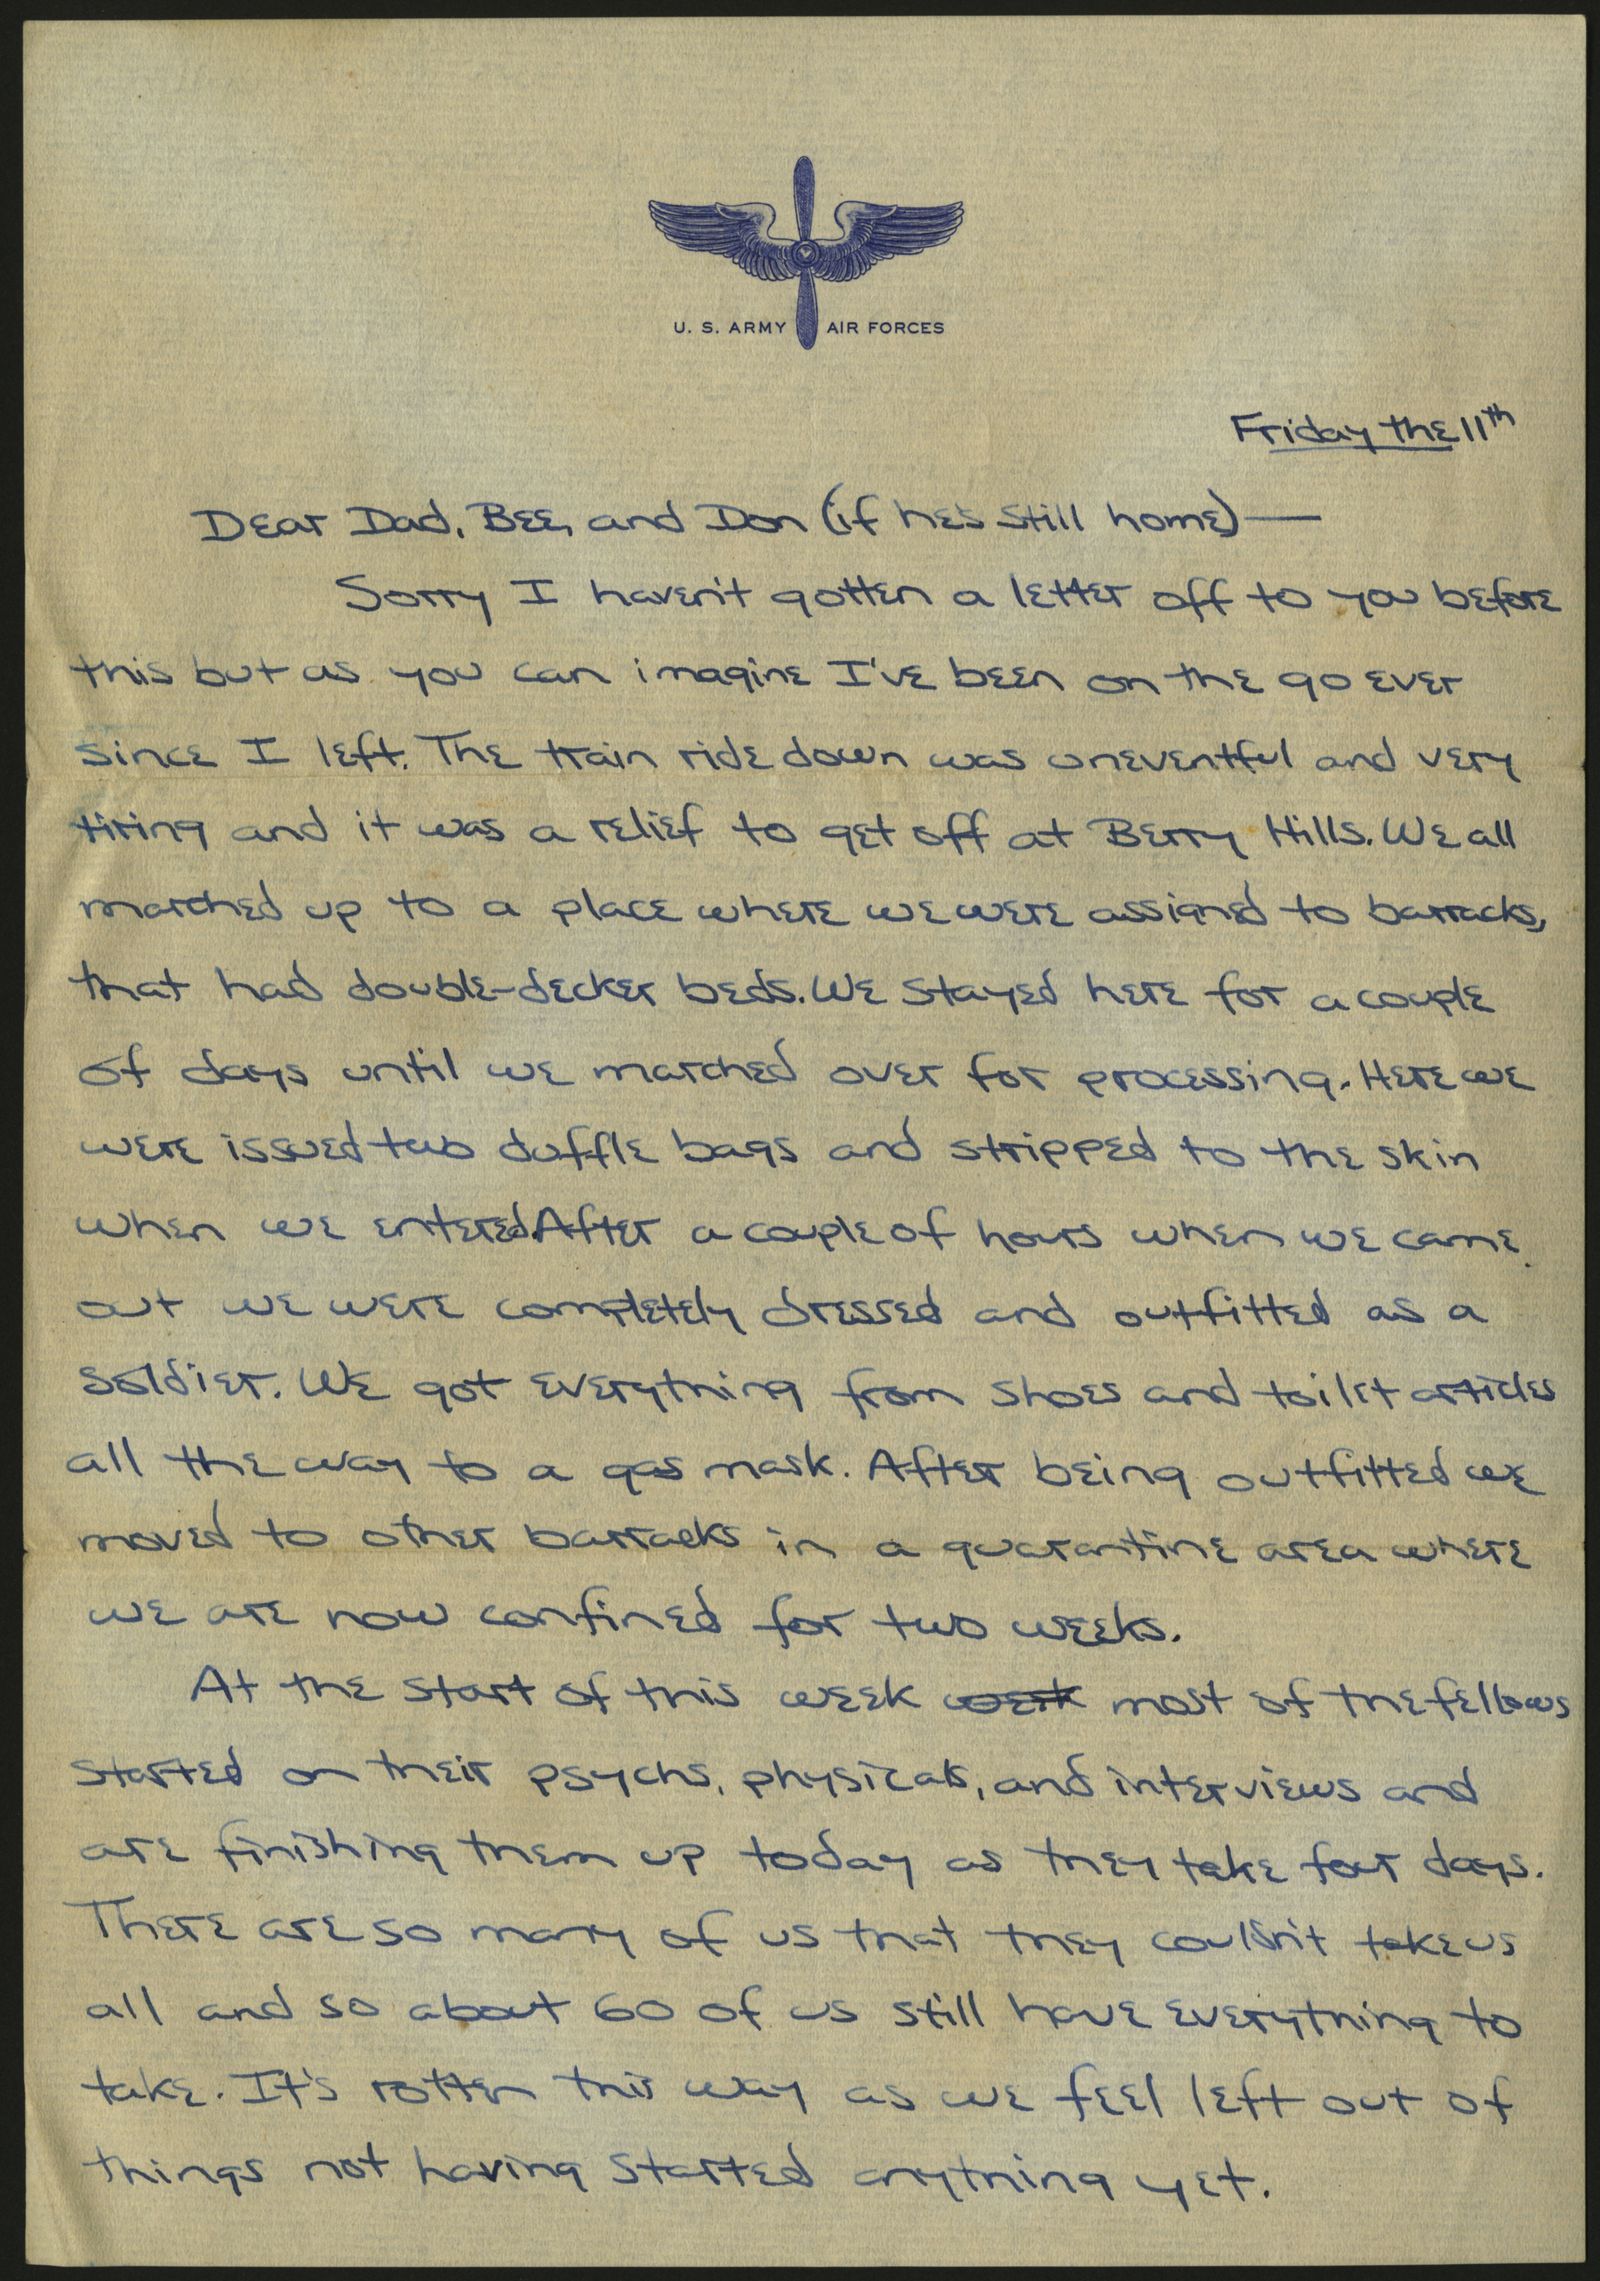 U. S. ARMY AIR FORCES
Friday the 11th
Dear Dad, Bee, and Don (if he's still home)—
Sorry I haven't gotten a letter off to you before
this but as you can imagine I've been on the go ever
since I left. The train ride down was uneventful and very
tiring and it was a relief to get off at Berry Hills. We all
marched up to a place where we were assigned to barracks,
that had double-decker beds. We stayed here for a couple
of days until we marched over for processing. Here we
were issued two duffle bags and stripped to the skin
when we entered. After a couple of hours when we came
out we were completely dressed and outfitted as a
soldier. We got everything from shoes and toilet articles
all the way to a gas mask. After being outfitted we
moved to other barracks in a quarantine area where
we are now confined for two weeks.
At the start of this week week most of the fellows
started on their psychs, physicals, and interviews and
are finishing them up today as they take four days.
There are so many of us that they couldn't take us
all and so about 60 of us still have everything to
take. It's rotten this way as we feel left out of
things not having started anything yet.